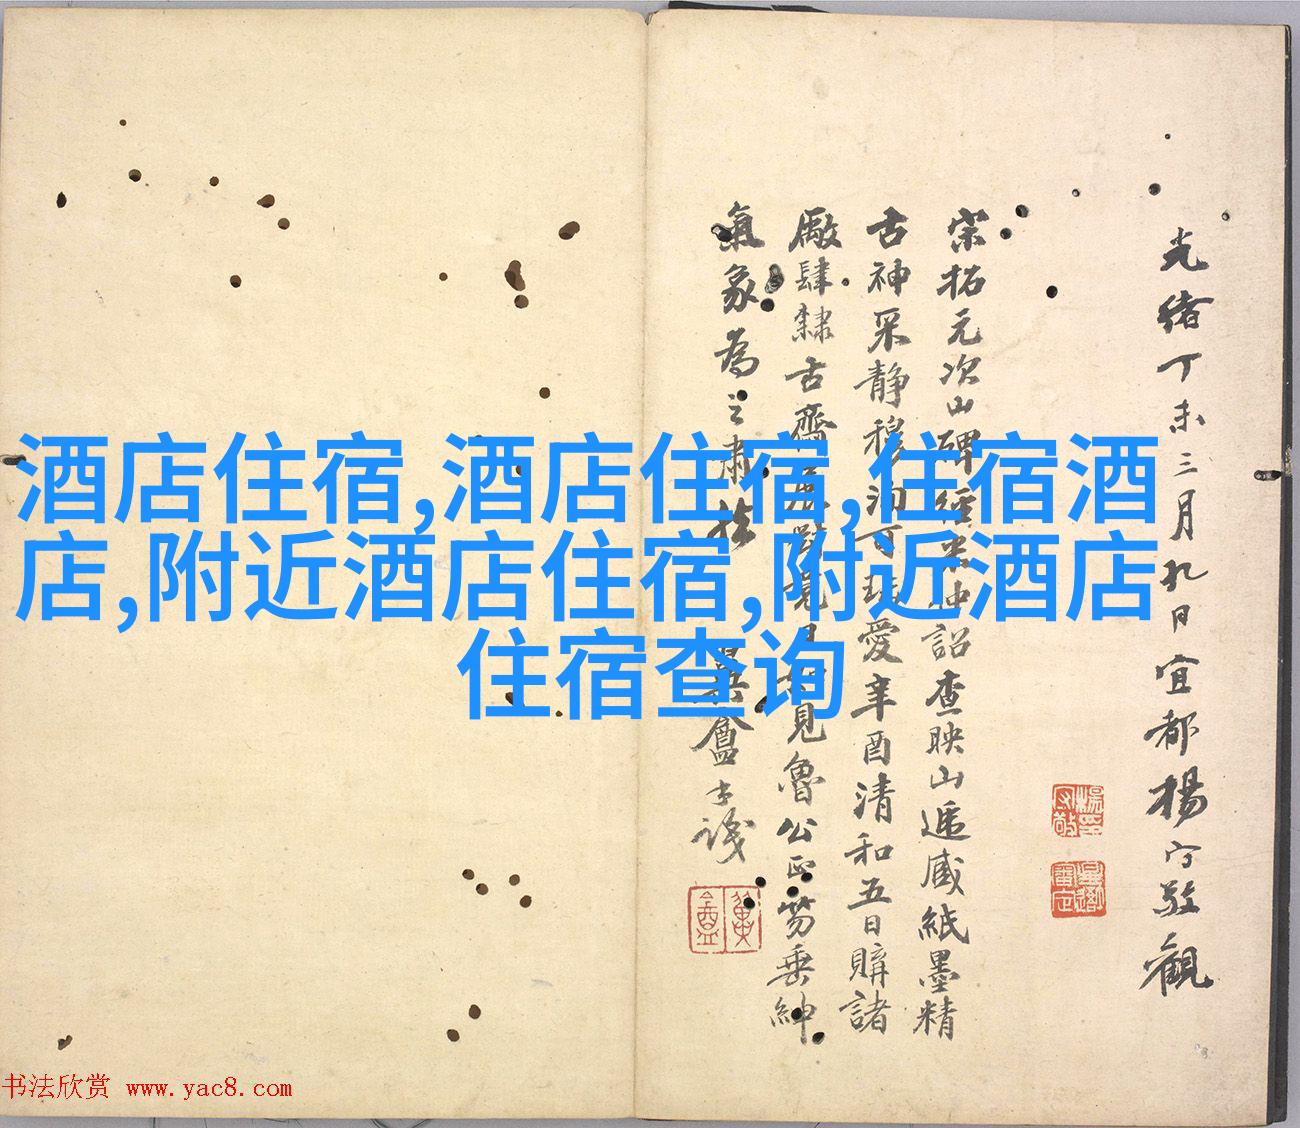 光緒丁未三月九日宜都楊守敬觀
宋拓元次山碑經朱仲詔查映山遞藏紙墨精
古神采静穆洵可珍愛辛酉清和五日購諸
廠肆隸古齋展對竟日如見魯公正笏垂紳
氣象為之肅然
盦士
酒店住宿,酒店住宿,住宿酒
店,附近酒店住宿,附近酒店
住宿查询
书法欣赏 www.yac8.com